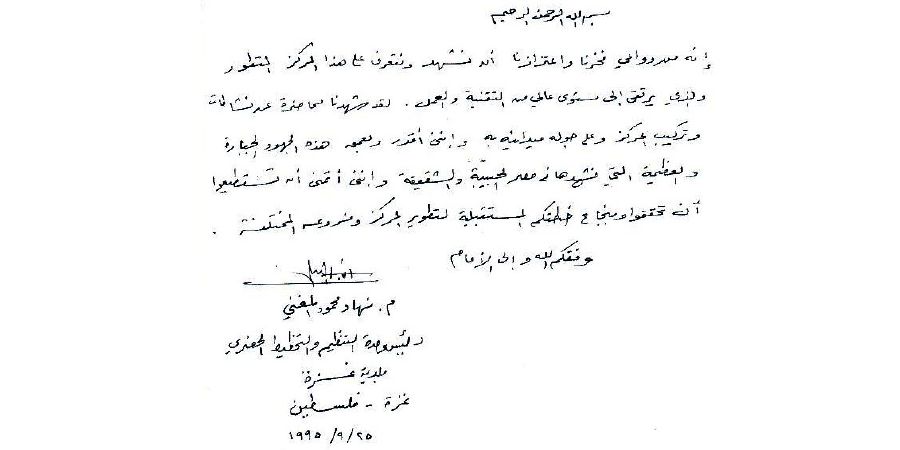 بسم الله الرحمن الرحيم
إنه لمن دواعي فخرنا واعتزازنا أن نشهد ونتعرف على هذا المركز المتطور
والذي يرتقي إلى مستوى عالي من التقنية والعمل . لقد شهدنا محاضرة عن نشاطات
وتركيب المركز وعلى جوله ميدانيه به وإنني أقدر وبعمق هذه الجهود الجبارة
والعظيمة التي نشهدها في مصر الحبيبة والشقيقة وإنني أتمنى أن تستطيعوا
أن تحققوا وبنجاح خطتكم المستقبلية لتطوير المركز وفروعه المختلفة .
وفقكم الله وإلى الأمام
م. نهاد محمود المغني
رئيس وحدة التنظيم والتخطيط الحضري
بلدية غزة
غزة - فلسطين
١٩٩٥/٩/٢٥